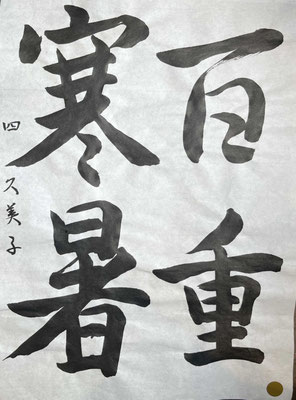 百重
寒暑
四 久美子